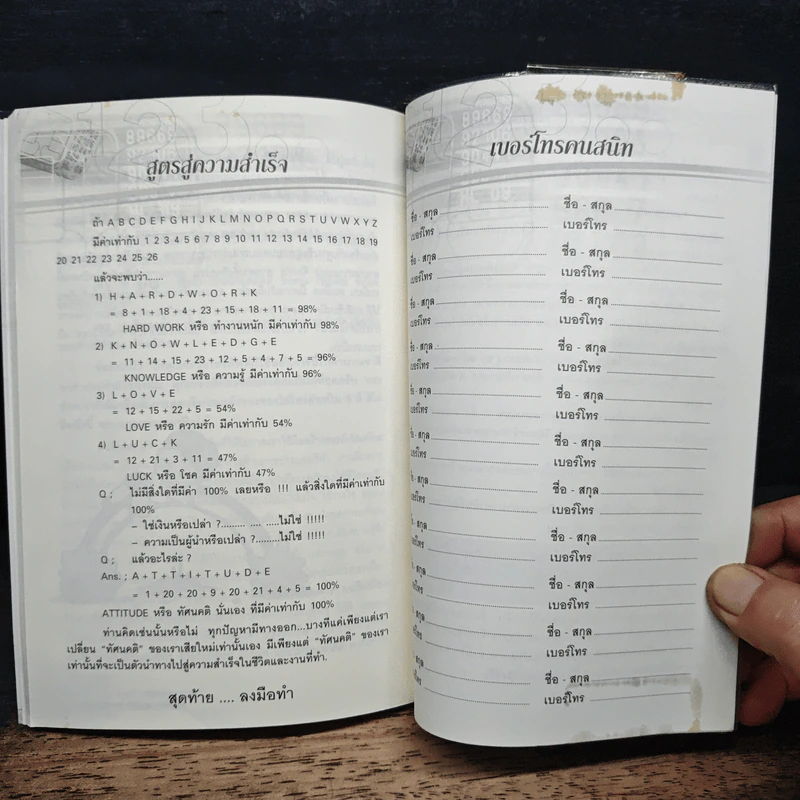 สูตรสู่ความสำเร็จ
ถ้า A B C D E F G H I J K L M N O P Q R S T U V W X Y Z
มีค่าเท่ากับ 1 2 3 4 5 6 7 8 9 10 11 12 13 14 15 16 17 18 19
20 21 22 23 24 25 26
แล้วจะพบว่า......
1) H + A + R + D + W + O + R + K
= 8 + 1 + 18 + 4 + 23 + 15 + 18 + 11 = 98%
HARD WORK หรือ ทำงานหนัก มีค่าเท่ากับ 98%
2) K + N + O + W + L + E + D + G + E
= 11 + 14 + 15 + 23 + 12 + 5 + 4 + 7 + 5 = 96%
KNOWLEDGE หรือ ความรู้ มีค่าเท่ากับ 96%
3) L + O + V + E
= 12 + 15 + 22 + 5 = 54%
LOVE หรือ ความรัก มีค่าเท่ากับ 54%
4) L + U + C + K
= 12 + 21 + 3 + 11 = 47%
LUCK หรือ โชค มีค่าเท่ากับ 47%
Q ; ไม่มีสิ่งใดที่มีค่า 100% เลยหรือ !!! แล้วสิ่งใดที่มีค่าเท่ากับ
100%
– ใช่เงินหรือเปล่า ?......... .... .....ไม่ใช่ !!!!!
– ความเป็นผู้นำหรือเปล่า ?.........ไม่ใช่ !!!!!
Q ; แล้วอะไรล่ะ ?
Ans. ; A + T + T + I + T + U + D + E
= 1 + 20 + 20 + 9 + 20 + 21 + 4 + 5 = 100%
ATTITUDE หรือ ทัศนคติ นั่นเอง ที่มีค่าเท่ากับ 100%
ท่านคิดเช่นนั้นหรือไม่ ทุกปัญหามีทางออก...บางทีแค่เพียงแต่เรา
เปลี่ยน "ทัศนคติ" ของเราเสียใหม่เท่านั้นเอง มีเพียงแต่ "ทัศนคติ" ของเรา
เท่านั้นที่จะเป็นตัวนำทางไปสู่ความสำเร็จในชีวิตและงานที่ทำ.
สุดท้าย .... ลงมือทำ
เบอร์โทรคนสนิท
ชื่อ - สกุล ชื่อ - สกุล
เบอร์โทร เบอร์โทร
ชื่อ - สกุล ชื่อ - สกุล
เบอร์โทร เบอร์โทร
ชื่อ - สกุล ชื่อ - สกุล
เบอร์โทร เบอร์โทร
ชื่อ - สกุล ชื่อ - สกุล
เบอร์โทร เบอร์โทร
ชื่อ - สกุล ชื่อ - สกุล
เบอร์โทร เบอร์โทร
ชื่อ - สกุล ชื่อ - สกุล
เบอร์โทร เบอร์โทร
ชื่อ - สกุล ชื่อ - สกุล
เบอร์โทร เบอร์โทร
ชื่อ - สกุล ชื่อ - สกุล
เบอร์โทร เบอร์โทร
ชื่อ - สกุล ชื่อ - สกุล
เบอร์โทร เบอร์โทร
ชื่อ - สกุล ชื่อ - สกุล
เบอร์โทร เบอร์โทร
ชื่อ - สกุล ชื่อ - สกุล
เบอร์โทร เบอร์โทร